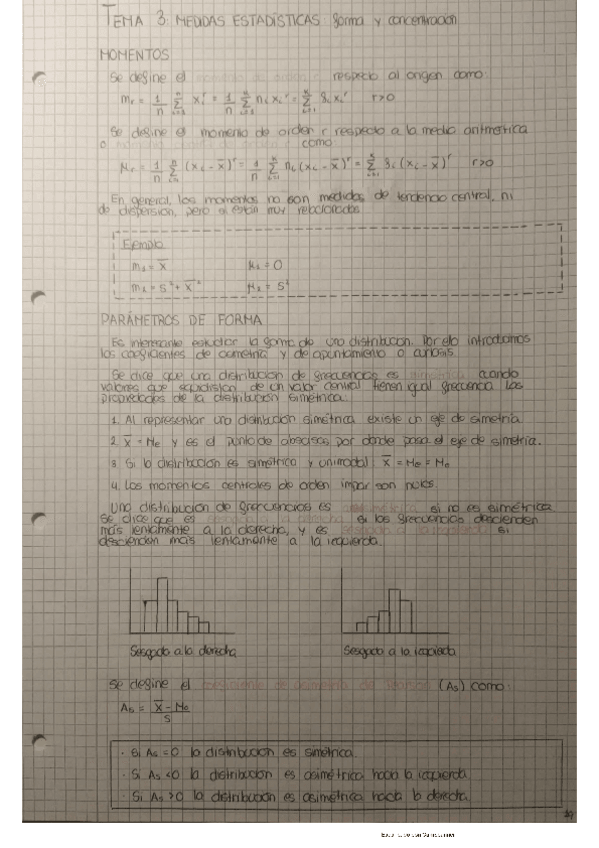 TEMA 3: MEDIDAS ESTADÍSTICAS: forma y concentración
MOMENTOS
Se define el momento de orden r respecto al origen como:
mr = 1/n Σ xi^r = 1/n Σ ni xi^r = Σ fi xi^r r>0
Se define el momento de orden r respecto a la media aritmética
o como
μr = 1/n Σ (xi - x̄)^r = 1/n Σ ni (xi - x̄)^r = Σ fi (xi - x̄)^r r>0
En general, los momentos no son medidas de tendencia central, ni
de dispersión, pero si están muy relacionados
Ejemplo
m1 = x̄ μ1 = 0
m2 = s² + x̄² μ2 = s²
PARÁMETROS DE FORMA
Es interesante estudiar la forma de una distribución. Por ello introducimos
los coeficientes de asimetría y de apuntamiento o curtosis.
Se dice que una distribución de frecuencias es simétrica cuando
valores que equidistan de un valor central tienen igual frecuencia. Las
propiedades de la distribución simétrica:
1. Al representar una distribución simétrica existe un eje de simetría.
2. x̄ = Me y es el punto de abscisas por donde pasa el eje de simetría.
3. Si la distribución es simétrica y unimodal: x̄ = Me = Mo
4. Los momentos centrales de orden impar son nulos.
Una distribución de frecuencias es asimétrica si no es simétrica.
Se dice que es sesgada a la derecha si las frecuencias descienden
más lentamente a la derecha, y es sesgada a la izquierda si
descienden más lentamente a la izquierda.
Sesgada a la derecha Sesgada a la izquierda
Se define el coeficiente de asimetría de (As) como:
As = x̄ - Mo / s
· Si As = 0 la distribución es simétrica.
· Si As < 0 la distribución es asimétrica hacia la izquierda.
· Si As > 0 la distribución es asimétrica hacia la derecha.